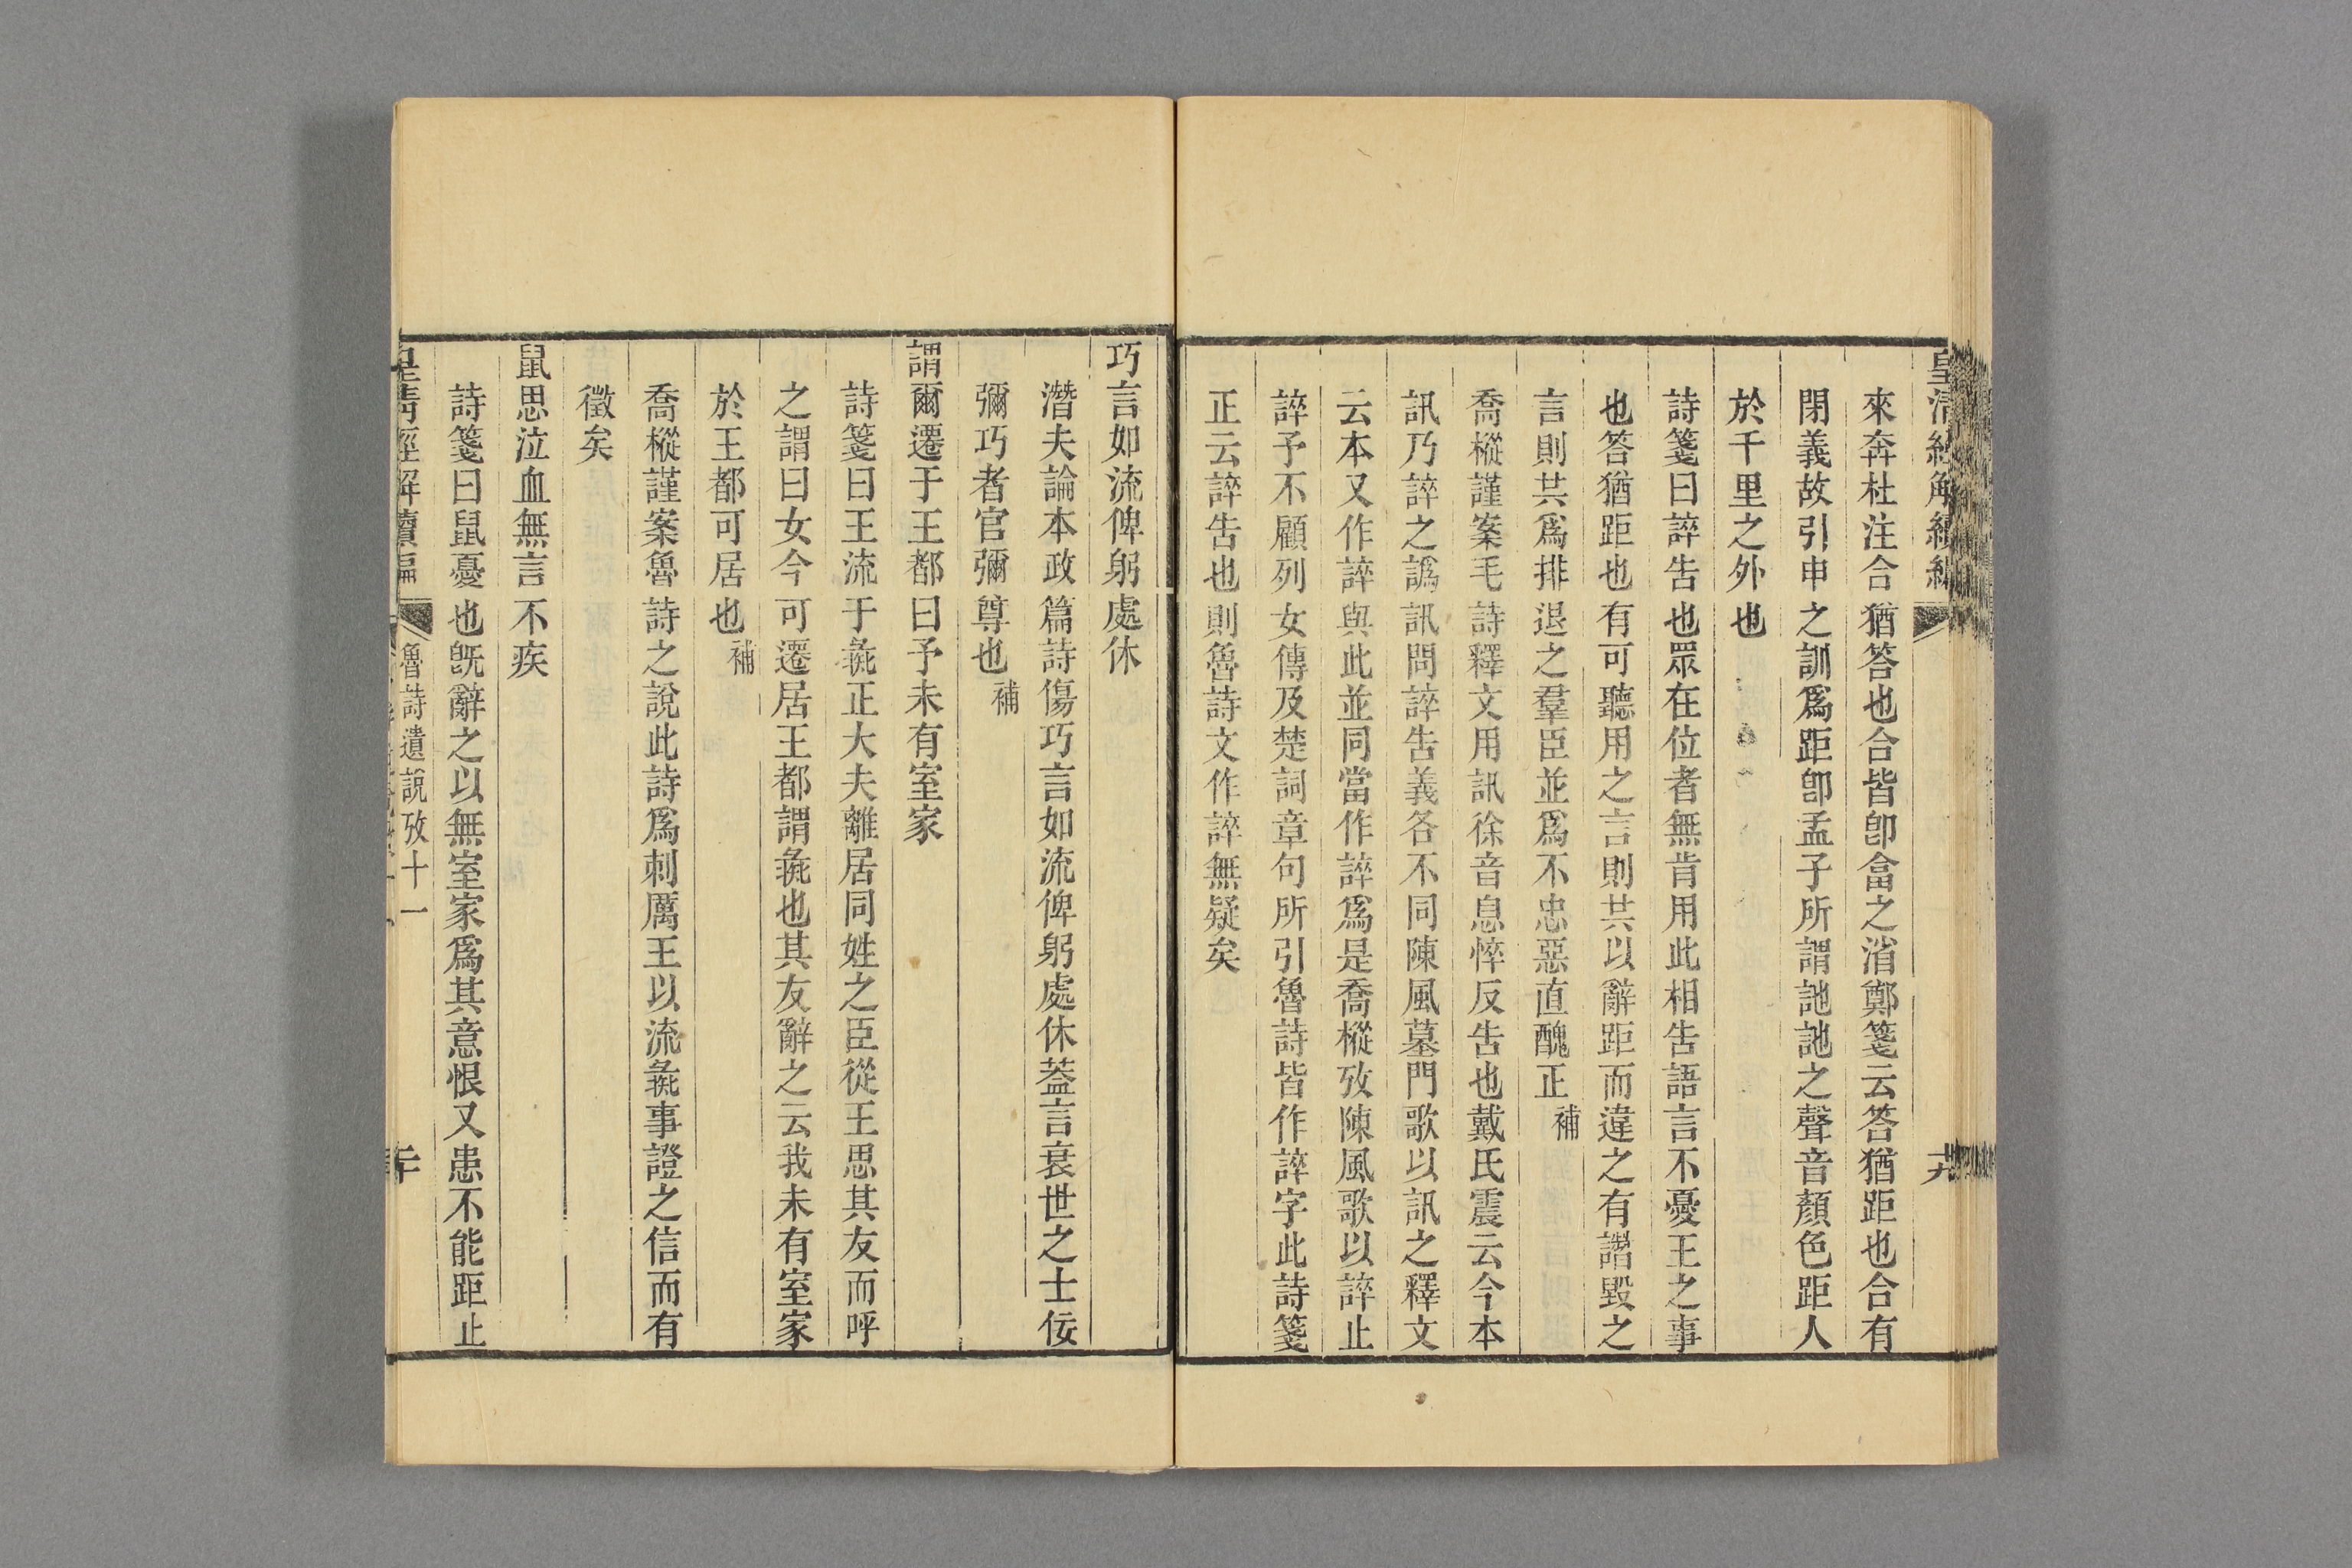 皇清經解續編
十九
來奔杜注合猶答也合皆卽畣之渻鄭箋云答猶距也合有
閉義故引申之訓爲距卽孟子所謂訑訑之聲音顏色距人
於千里之外也
詩箋曰誶吿也眾在位者無肯用此相吿語言不憂王之事
也答猶距也有可聽用之言則共以辭距而違之有譖毀之
言則共爲排退之羣臣並爲不忠惡直醜正補
喬樅謹案毛詩釋文用訊徐音息悴反吿也戴氏震云今本
訊乃誶之譌訊問誶吿義各不同陳風墓門歌以訊之釋文
云本又作誶與此並同當作誶爲是喬樅攷陳風歌以誶止
誶予不顧列女傳及楚詞章句所引魯詩皆作誶字此詩箋
正云誶吿也則魯詩文作誶無疑矣
巧言如流俾躬處休
潛夫論本政篇詩傷巧言如流俾躬處休葢言衰世之士佞
彌巧者官彌尊也補
謂爾遷于王都曰予未有室家
詩箋曰王流于彘正大夫離居同姓之臣從王思其友而呼
之謂曰女今可遷居王都謂彘也其友辭之云我未有室家
於王都可居也補
喬樅謹案魯詩之說此詩爲刺厲王以流彘事證之信而有
徵矣
鼠思泣血無言不疾
詩箋曰鼠憂也旣辭之以無室家爲其意恨又患不能距止
皇清經解續編
魯詩遺說攷十一
二十